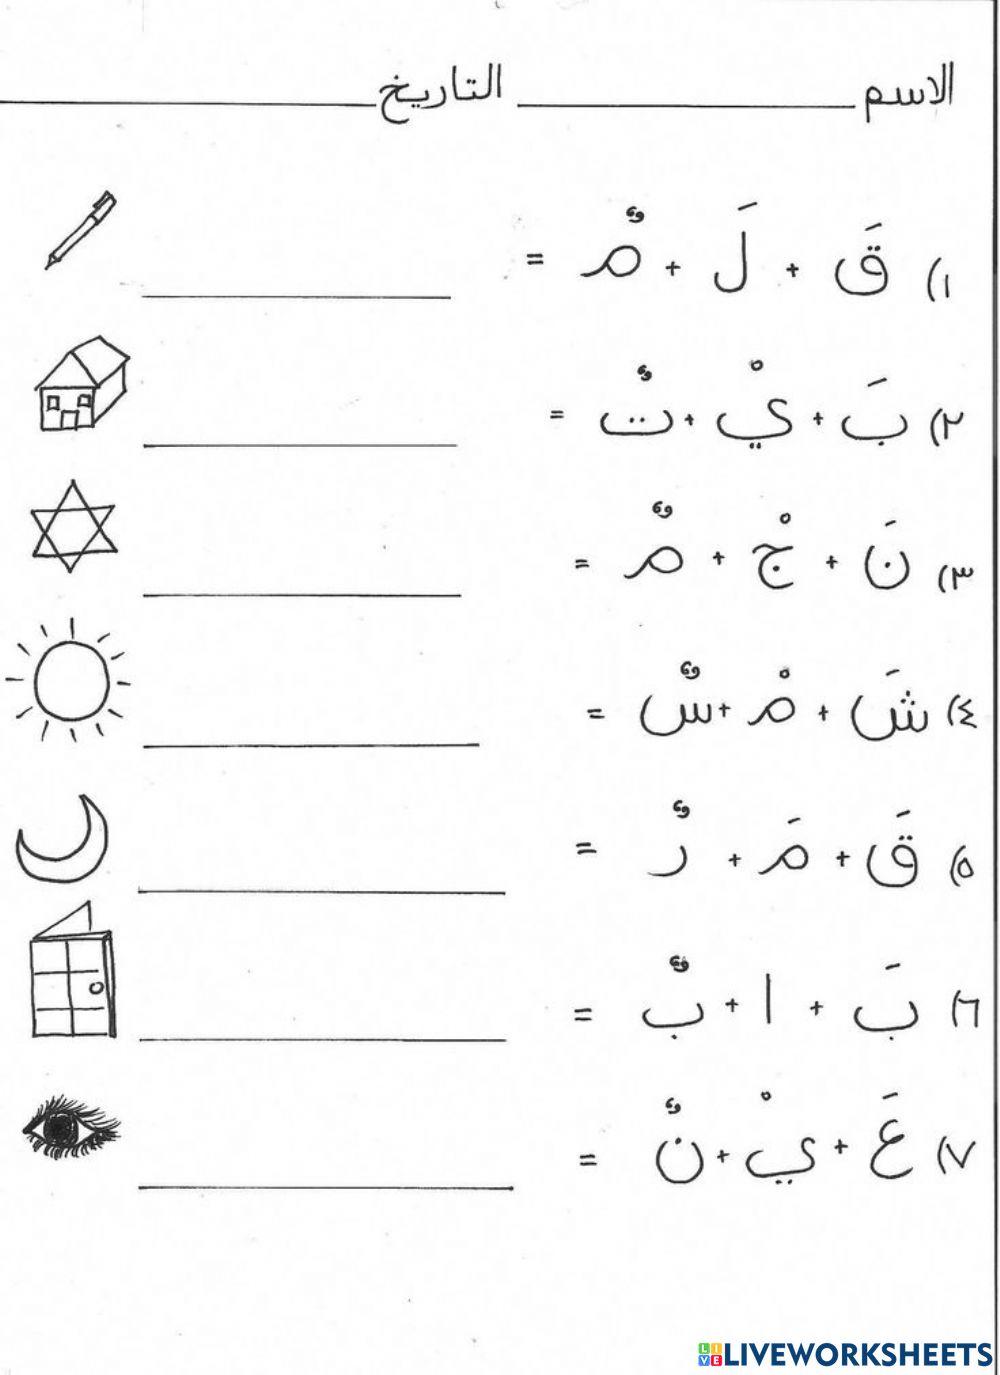 الاسم ____________ التاريخ ____________
١) قَ + لَ + مٌ =
٢) بَ + يْ + تٌ =
٣) نَ + جْ + مٌ =
٤) شَ + مْ + سٌ =
٥) قَ + مَ + رٌ =
٦) بَ + ا + بٌ =
٧) عَ + يْ + نٌ =
LIVEWORKSHEETS